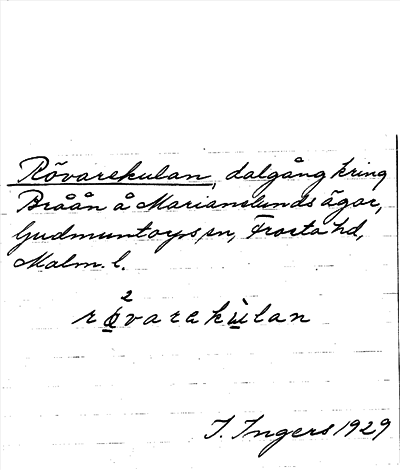 Rövarekulan, dalgång kring
Bråån å Marianelunds ägor,
Gudmuntorps sn, Frosta hd,
Malm. l.
2
rövarekùlan
I. Ingers 1929